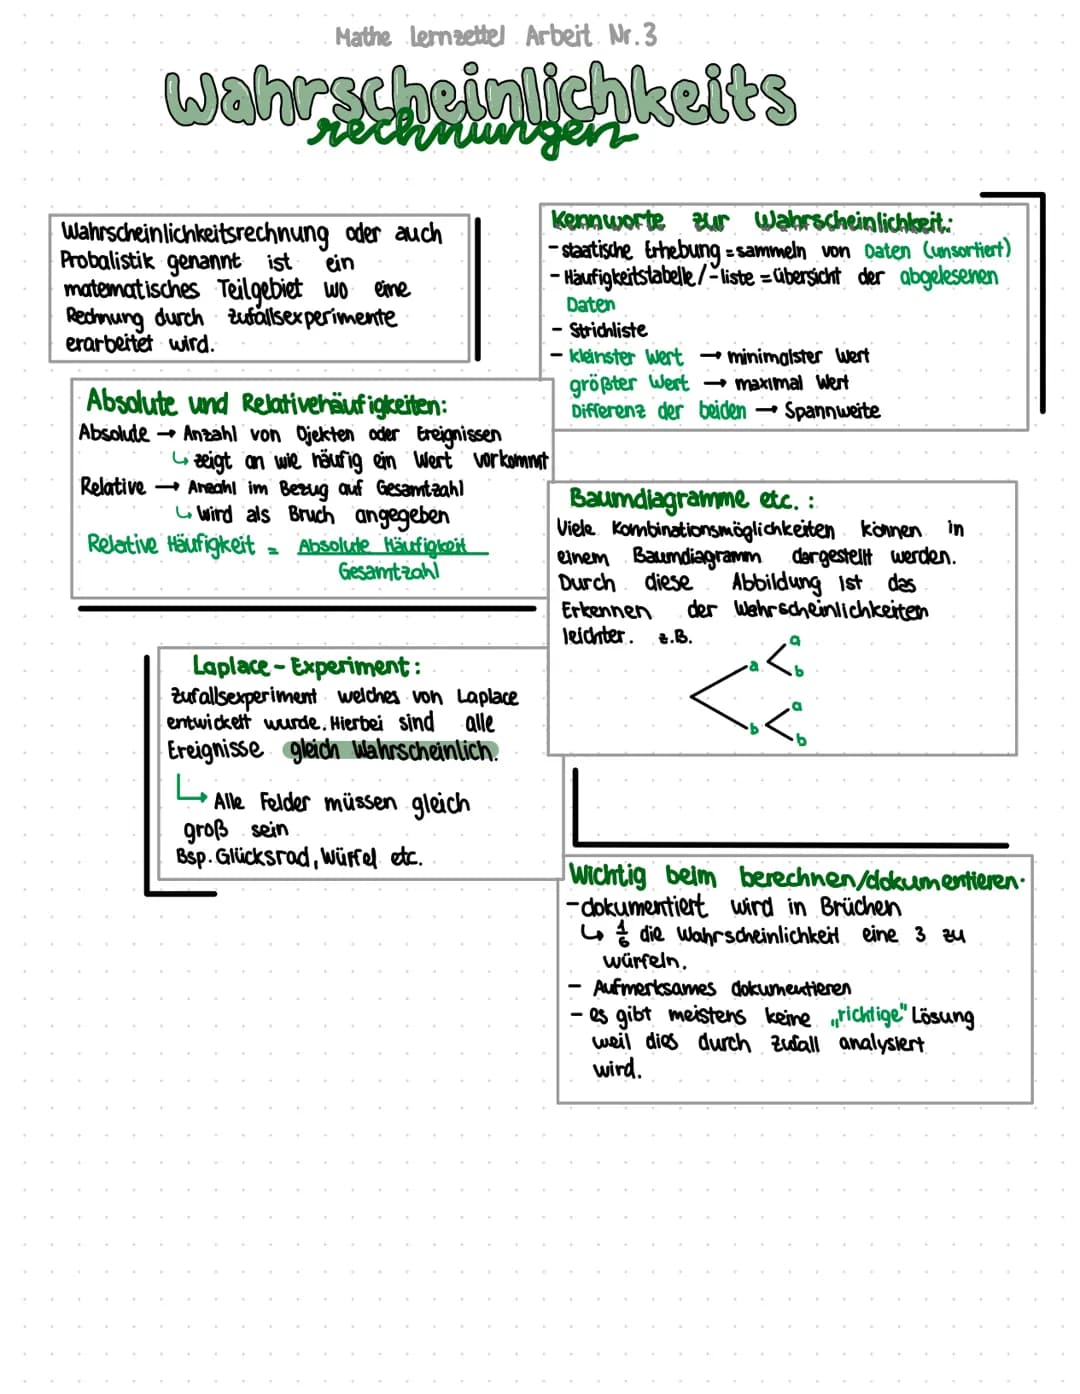 Mathe Lernzettel Arbeit Nr.3
Wahrscheinlichkeits
rechnungen
Wahrscheinlichkeitsrechnung oder auch
Probalistik genannt ist ein
matematisches Teilgebiet wo eine
Rechnung durch zufallsexperimente
erarbeitet wird.
Kennworte zur Wahrscheinlichkeit:
- staatische Erhebung = sammeln von Daten (unsortiert)
- Häufigkeitstabelle/-liste = übersicht der abgelesenen
Daten
- Strichliste
- kleinster Wert → minimalster Wert
größter Wert → maximal Wert
Differenz der beiden → Spannweite
Absolute und Relativehäufigkeiten:
Absolute → Anzahl von Ojekten oder Ereignissen
↳ zeigt an wie häufig ein Wert vorkommt
Relative → Anzahl im Bezug auf Gesamtzahl
↳ wird als Bruch angegeben
Relative Häufigkeit = Absolute Häufigkeit
Gesamtzahl
Baumdiagramme etc. :
Viele Kombinationsmöglichkeiten können in
einem Baumdiagramm dargestellt werden.
Durch diese Abbildung ist das
Erkennen der Wahrscheinlichkeiten
leichter. z.B.
a
a
b
a
b
b
Laplace - Experiment:
Zufallsexperiment welches von Laplace
entwickelt wurde. Hierbei sind alle
Ereignisse gleich Wahrscheinlich.
↳ Alle Felder müssen gleich
groß sein
Bsp. Glücksrad, Würfel etc.
Wichtig beim berechnen/dokumentieren.
- dokumentiert wird in Brüchen
↳ 1/6 die Wahrscheinlichkeit eine 3 zu
würfeln.
- Aufmerksames dokumentieren
- es gibt meistens keine „richtige" Lösung
weil dies durch Zufall analysiert
wird.